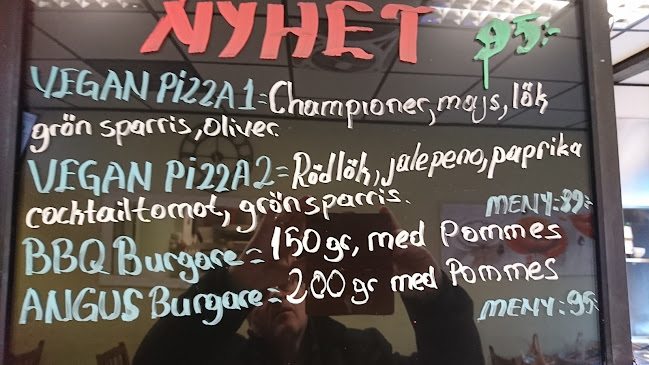 NYHET 95:-
VEGAN PizzA1=Championer, majs, lök
grön sparris, oliver.
VEGAN PizzA2=Rödlök, jalepeno, paprika
cocktailtomot, grönsparris.
MENY=89:-
BBQ Burgare=150gr, med Pommes
ANGUS Burgare=200gr med Pommes
MENY=95:-